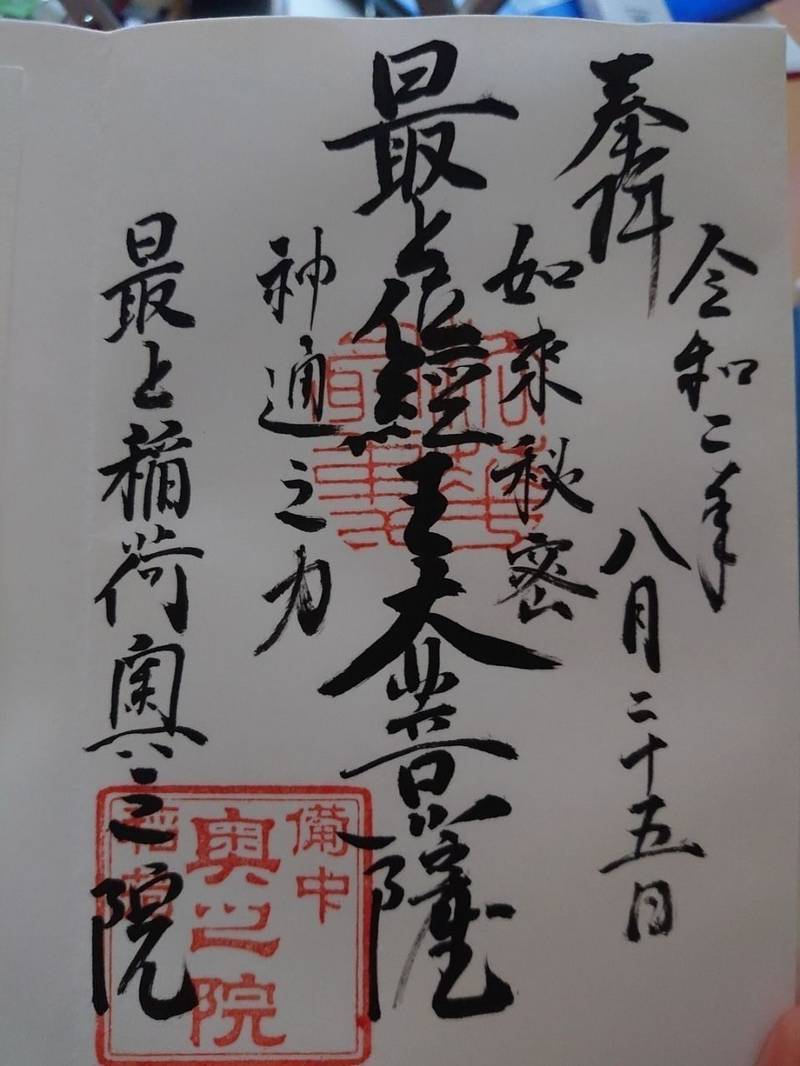 奉拝
令和二年
八月二十五日
如来秘密
最上位經王大菩薩
神通之力
最上稲荷奥之院
備中
奥之院